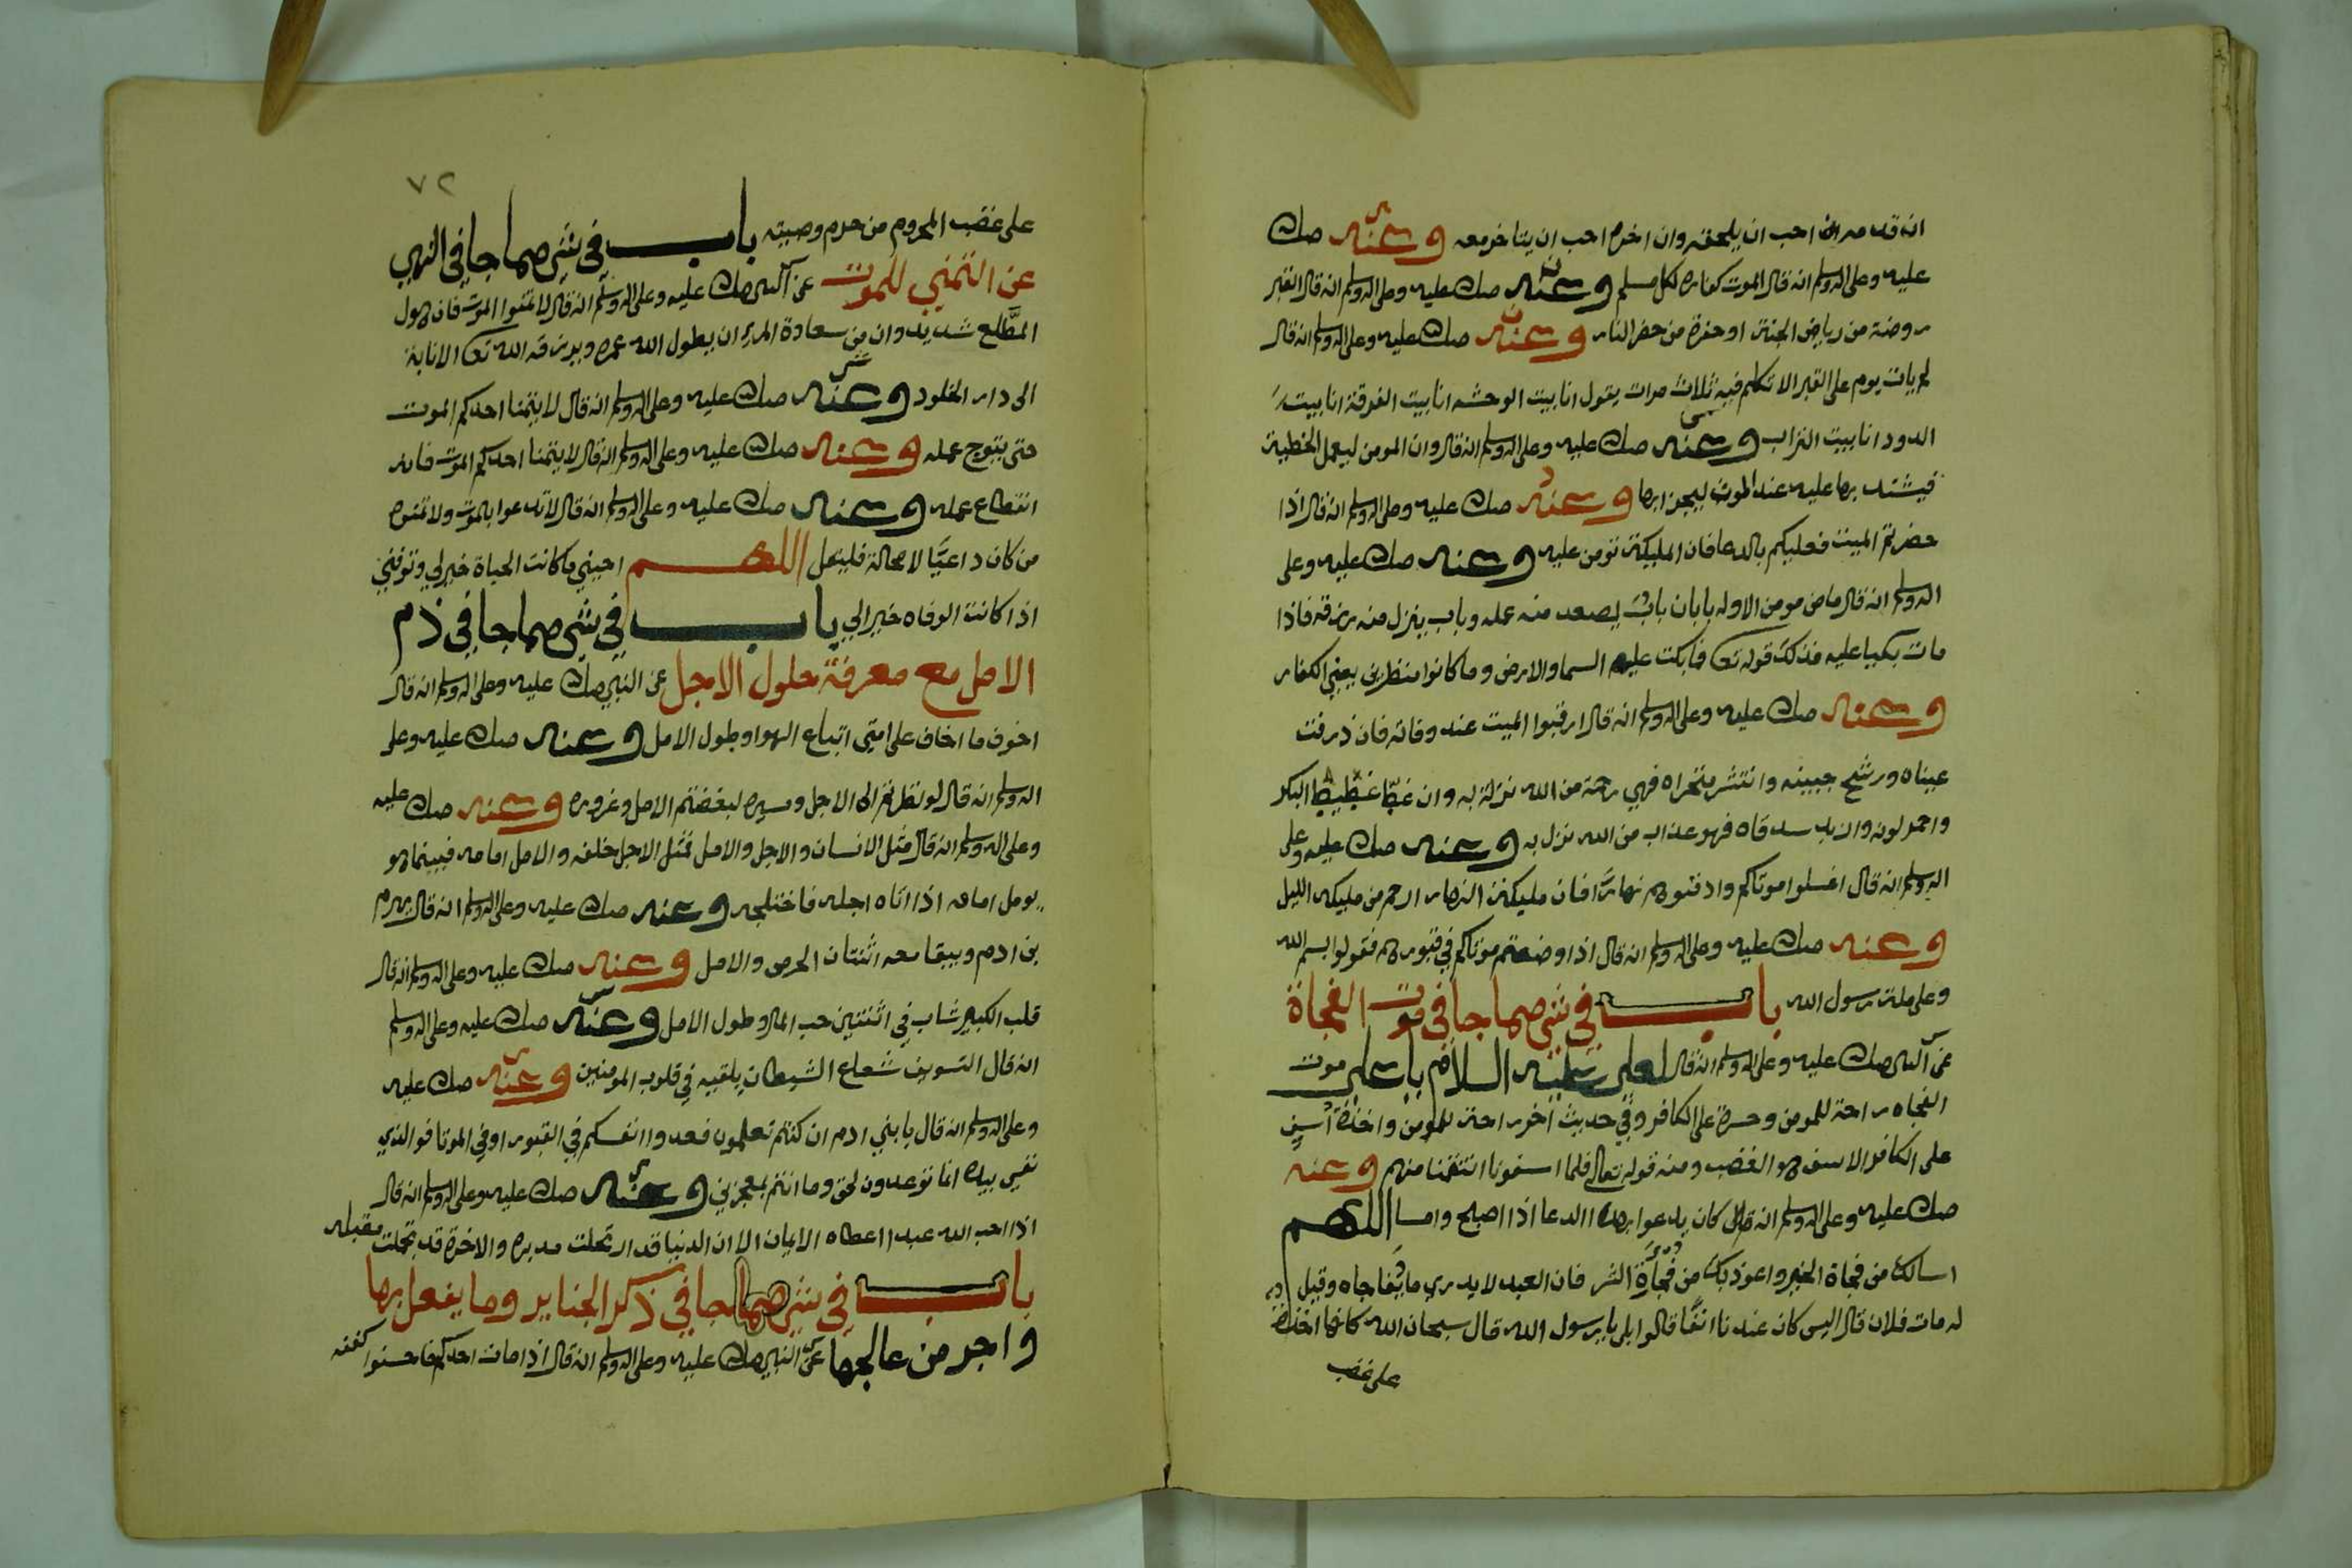 انه قدمه احب ان يلحقه وان اخره احب ان يتاخر معه وعنه صلى
عليه وعلى اله وسلم انه قال الموت كفارة لكل مسلم وعنه صلى عليه وعلى اله وسلم انه قال القبر
روضة من رياض الجنة او حفرة من حفر النار وعنه صلى عليه وعلى اله وسلم انه قال
لم يات يوم على القبر الا تكلم فيه ثلاث مرات يقول انا بيت الوحشه انا بيت الغرقة انا بيت
الدود انا بيت التراب وعنه صلى عليه وعلى اله وسلم انه قال وان المومن ليعمل الخطية
فيشتد بها عليه عند الموت ليجزا بها وعنه صلى عليه وعلى اله وسلم انه قال اذا
حضرتم الميت فعليكم بالدعا فان المليكة تومن عليه وعنه صلى عليه وعلى
اله وسلم انه قال ما من مومن الا وله بابان باب يصعد منه عمله وباب ينزل منه رزقه فاذا
مات بكيا عليه فذلك قوله تعا فما بكت عليهم السما والارض وما كانوا منظرين يعني الكفار
وعنه صلى عليه وعلى اله وسلم انه قال ارقبوا الميت عند وفاته فان ذرفت
عيناه ورشح جبينه وانتشر منخراه فهي رحمة من الله نزلة به وان غط غطيط البكر
واحمر لونه وازبد شدقاه فهو عذاب من الله نزل به وعنه صلى عليه وعلى
اله وسلم انه قال اغسلوا موتاكم وادفنوهم نهارا فان مليكة النهار ارحم من مليكة الليل
وعنه صلى عليه وعلى اله وسلم انه قال اذا وضعتم موتاكم في قبورهم فقولوا بسم الله
وعلى ملة رسول الله باب في شي مما جا في موت الفجاة
عن النبي صلى عليه وعلى اله وسلم انه قال لعلي عليه السلام يا علي موت
الفجاه راحة للمومن وحسرة على الكافر وفي حديث اخر راحة للمومن واخذة اسف
على الكافر الاسف هو الغضب ومنه قوله تعالى فلما اسفونا انتقمنا منهم وعنه
صلى عليه وعلى اله وسلم انه قال كان يدعوا بهذا الدعا اذا اصبح وامسا اللهم
اسالك من فجاة الخير واعوذ بك من فجاة الشر فان العبد لا يدري ما يفاجاه وقيل
له مات فلان قال اليس كان عندنا انفا قالوا بلى يا رسول الله قال سبحان الله كانها اخذة
على غضب
٧٢
على غضب المحروم من حرم وصيته باب في شي مما جا في النهي
عن التمني للموت عن النبي صلى عليه وعلى اله وسلم انه قال لا تمنوا الموت فان هول
المطلع شديد وان من سعادة المرء ان يطول الله عمره ويرزقه الله تعا الانابة
الى دار الخلود وعنه صلى عليه وعلى اله وسلم انه قال لا يتمنا احدكم الموت
حتى يتوج عمله وعنه صلى عليه وعلى اله وسلم انه قال لا يتمنا احدكم الموت فانه
انقطاع عمله وعنه صلى عليه وعلى اله وسلم انه قال لا تدعوا بالموت ولا تمنوه
من كان داعيا لا محالة فليقل اللهم احيني ما كانت الحياة خير لي وتوفني
اذا كانت الوفاه خير الي باب في شي مما جا في ذم
الامل مع معرفة حلول الاجل عن النبي صلى عليه وعلى اله وسلم انه قال
اخوف ما اخاف على امتي اتباع الهوا وطول الامل وعنه صلى عليه وعلى
اله وسلم انه قال لو نظرتم الى الاجل ومسيره لبغضتم الامل وغروره وعنه صلى عليه
وعلى اله وسلم انه قال مثل الانسان والاجل والامل فمثل الاجل خلفه والامل امامه فبينما هو
يومل امامه اذا اتاه اجله فاختلجه وعنه صلى عليه وعلى اله وسلم انه قال يهرم
بن ادم ويبقا معه اثنتان الحرص والامل وعنه صلى عليه وعلى اله وسلم انه قال
قلب الكبير شاب في اثنتين حب المال وطول الامل وعنه صلى عليه وعلى اله وسلم
انه قال التسويف شعاع الشيطان يلقيه في قلوب المومنين وعنه صلى عليه
وعلى اله وسلم انه قال يا بني ادم ان كنتم تعلمون فعدوا انفسكم في القبور او في الموتا فو الذي
نفسي بيده انما توعدون لحق وما انتم بمعجزين وعنه صلى عليه وعلى اله وسلم انه قال
اذا احب الله عبدا اعطاه الايمان الا ان الدنيا قد ارتحلت مدبره والاخرة قد تجلت مقبله
باب في شي مما جا في ذكر الجنايز وما يفعل بها
واجر من عالجها عن النبي صلى عليه وعلى اله وسلم انه قال اذا مات احدكم فاحسنوا كفنه